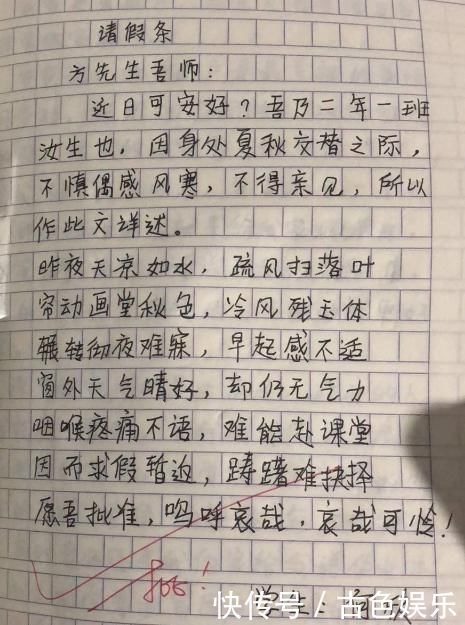 请假条
方先生吾师：
近日可安好？吾乃二年一班
汝生也，因身处夏秋交替之际，
不慎偶感风寒，不得亲见，所以
作此文详述。
昨夜天凉如水，疏风扫落叶
帘动画堂秋色，冷风残玉体
辗转彻夜难寐，早起感不适
窗外天气晴好，却仍无气力
咽喉疼痛不语，难能赴课堂
因而求假暂返，踌躇难抉择
愿吾批准，呜呼哀哉，哀哉可怜！
批！
学生：
快传号/古色娱乐